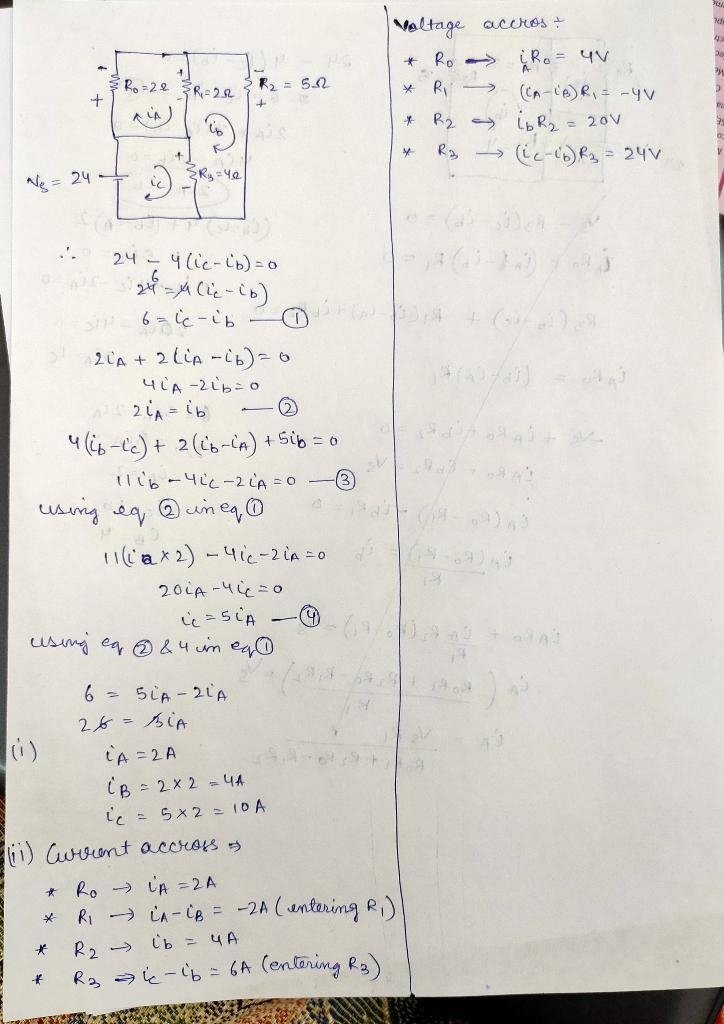 R₀=2Ω R₁=2Ω R₂ = 5Ω
iA ib
Vs = 24 ic R₃=4Ω
∴ 24 - 4(ic-ib)=0
24 6 = 4(ic-ib)
6 = ic-ib —①
2iA + 2(iA-ib)=0
4iA-2ib=0
2iA=ib —②
4(ib-ic)+2(ib-iA)+5ib=0
11ib-4ic-2iA=0 —③
using eq ② in eq ①
11(ia×2)-4ic-2iA=0
20iA-4ic=0
ic=5iA —④
using eq ② & 4 in eq ①
6 = 5iA-2iA
2 6 = 3iA
(i) iA=2A
iB=2×2=4A
ic = 5×2=10A
(ii) Current accross ⇒
* R₀ → iA=2A
* R₁ → iA-iB = -2A (entering R₁)
* R₂ → ib = 4A
* R₃ ⇒ ic-ib=6A (entering R₃)
Voltage accros ÷
* R₀ → iAR₀= 4V
* R₁ → (iA-iB)R₁= -4V
* R₂ → ibR₂ = 20V
* R₃ → (ic-ib)R₃=24V